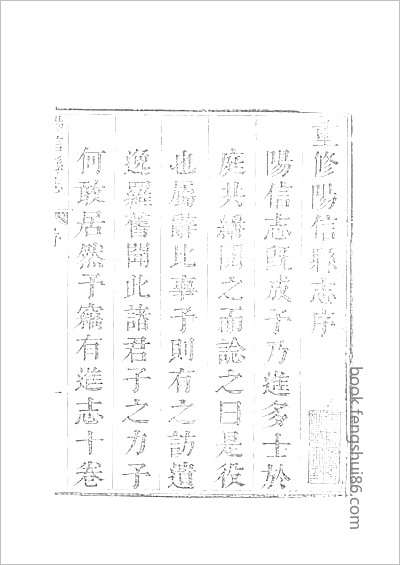 重修陽信縣志序
陽信志既成予乃進多士於
庭共繙閱之而論之曰是役
也屬辭比事予則有之訪遺
逸羅舊聞此諸君子之力予
何敢居然予竊有進志十卷
陽信縣志
序
一
book.fengshui86.com